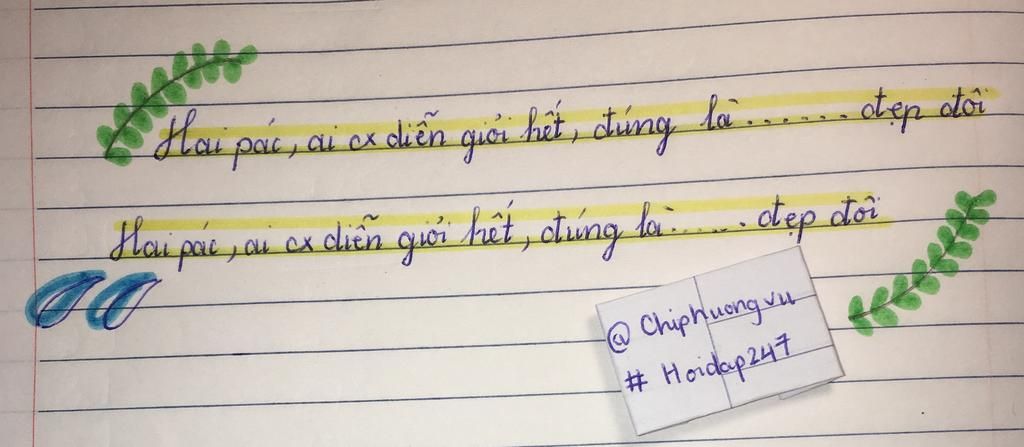 Hai pác, ai cx diễn giỏi hết, đúng là...... đẹp đôi
Hai pác, ai cx diễn giỏi hết, đúng là...... đẹp đôi
@ Chiphuongvu
# Hoidap247